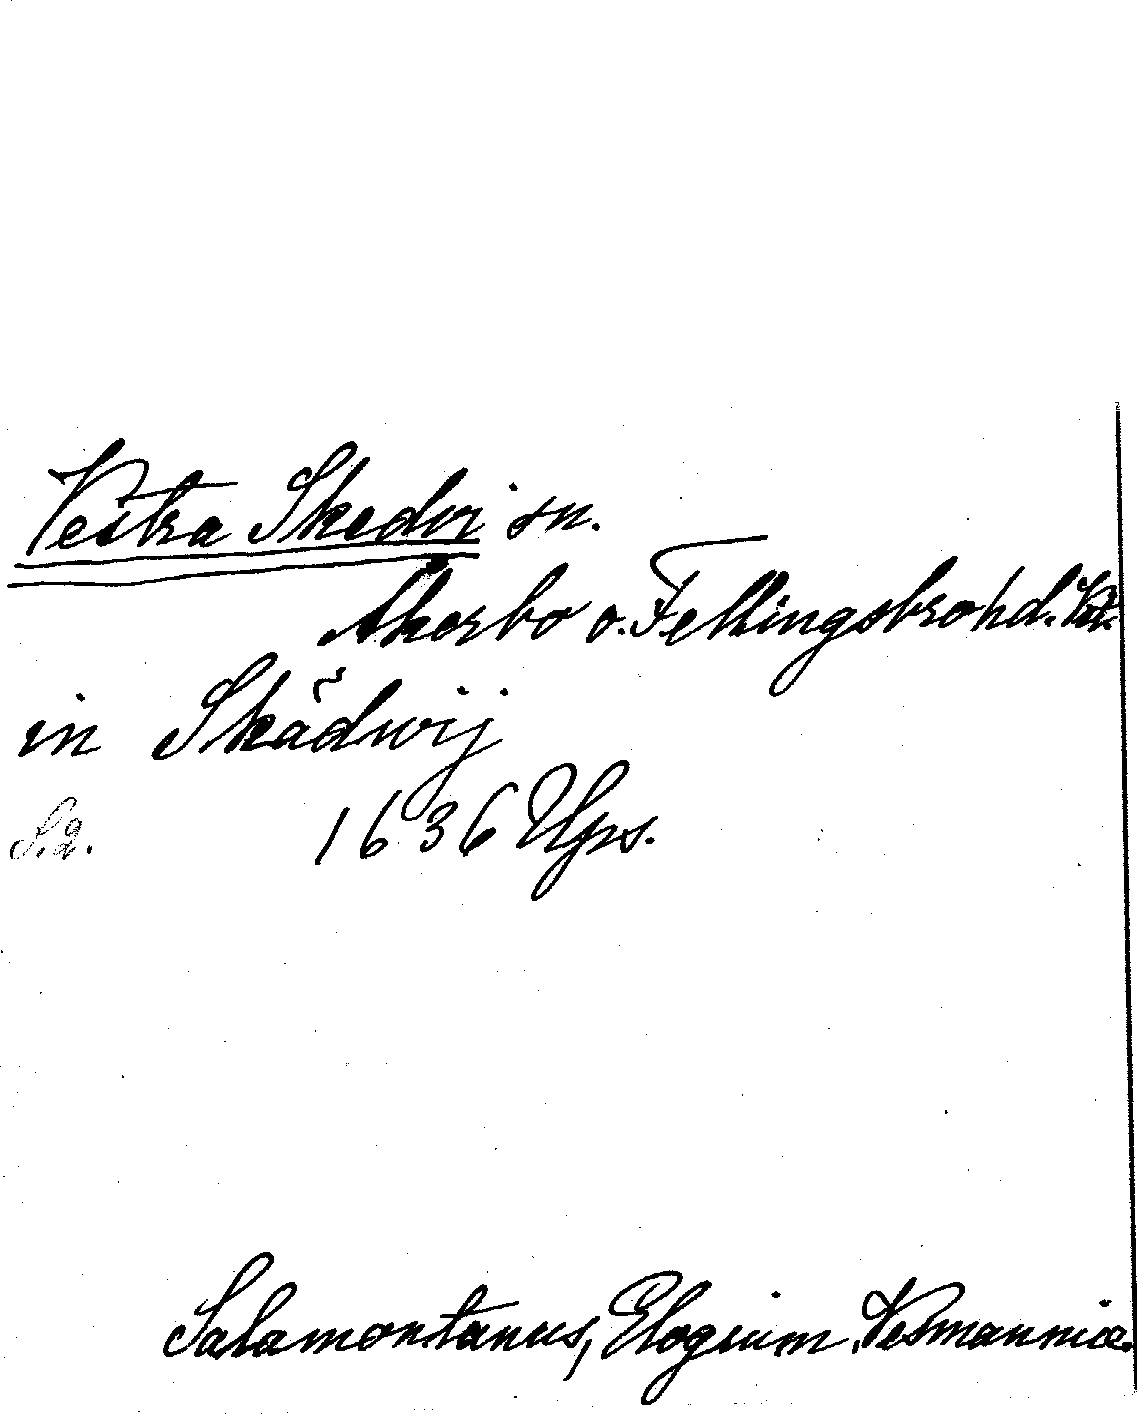 Vestra Skedvi sn.
Åkerbo o. Fellingsbro hd. Vm.
in Skädwij
S. 2. 1636 Ups.
Salamontanus, Elogium Vesmanniæ.